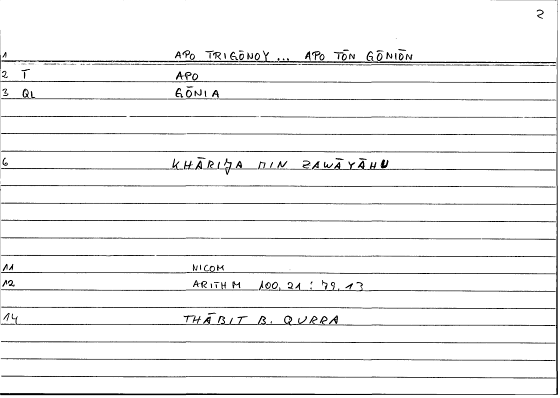 2
1 APO TRIGŌNOY ... APO TŌN GŌNIŌN
2 T APO
3 QL GŌNIA
6 KHĀRIJA MIN ZAWĀYĀHU
11 NICOM
12 ARITHM 100,21 : 79,13
14 THĀBIT B. QURRA